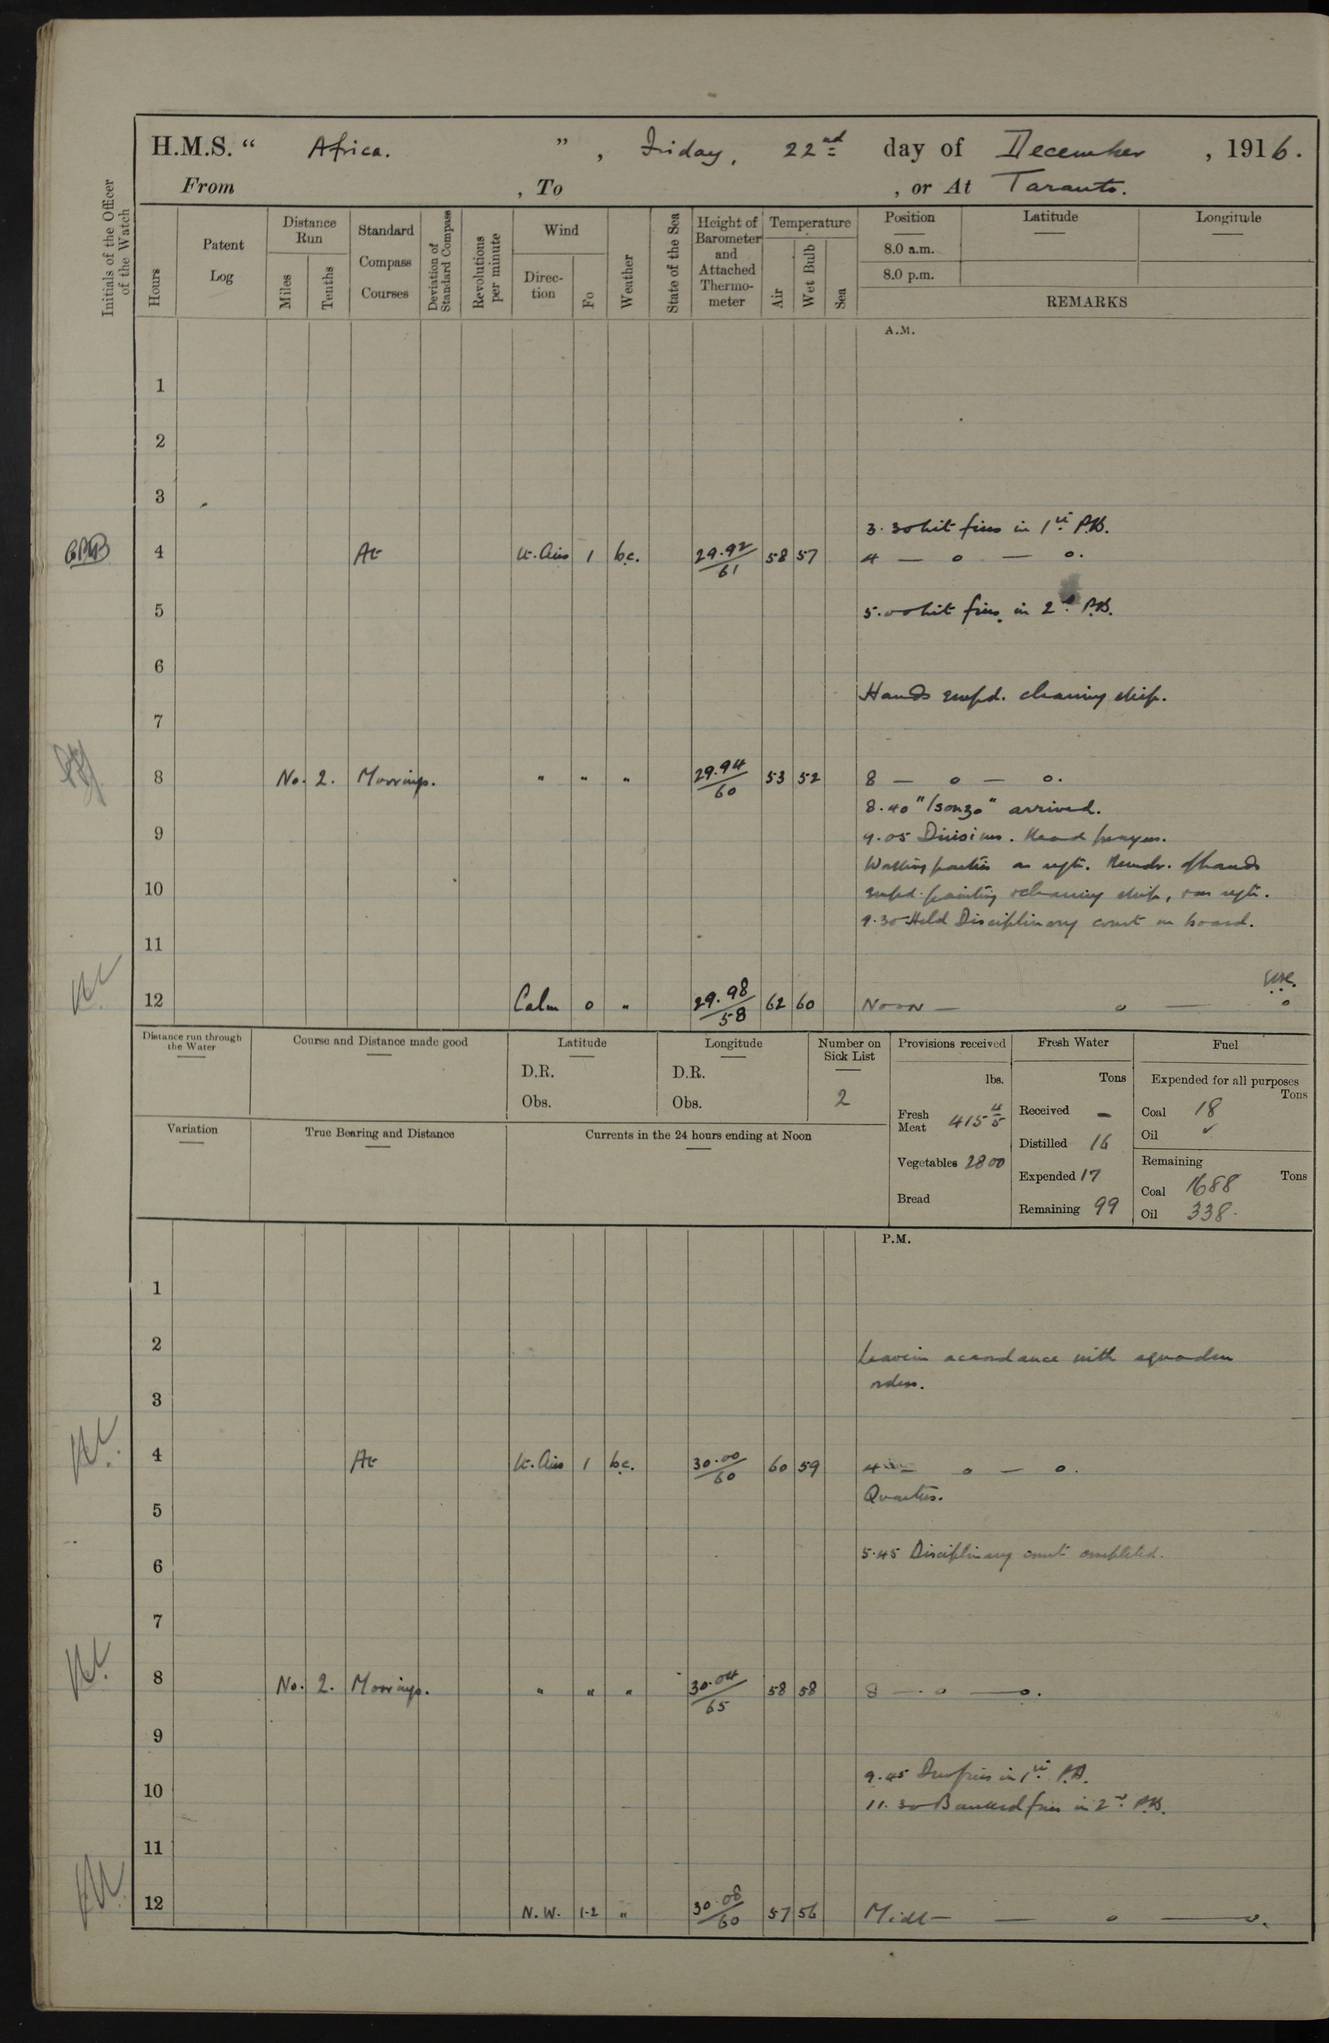 H.M.S. " Africa. ", Friday, 22nd day of December, 1916.
From , To , or At Taranto.
Initials of the Officer of the Watch
Hours
Patent Log
Distance Run
Miles
Tenths
Standard Compass Courses
Deviation of Standard Compass
Revolutions per minute
Wind
Direc-tion
Fo
Weather
State of the Sea
Height of Barometer and Attached Thermo-meter
Temperature
Air
Wet Bulb
Sea
Position
8.0 a.m.
8.0 p.m.
Latitude
Longitude
REMARKS
A.M.
1
2
3
3.30 Lit fires in 1st P.B.
4 At Lt. Airs 1 bc. 29.92/61 58 57 4 — o — o.
5 5.00 Lit fires in 2nd P.B.
6
Hands empd. cleaning ship.
7
8 No. 2. Moorings. " " " 29.94/60 53 52 8 — o — o.
8.40 "Isonzo" arrived.
9 9.05 Divisions. Read prayers.
Working parties as reqte. Remdr. of hands
10 empd. painting & cleaning ship, & as reqte.
9.30 Held Disciplinary court on board.
11
12 Calm 0 " 29.98/58 62 60 Noon — o — o
Distance run through the Water
Course and Distance made good
Latitude
D.R.
Obs.
Longitude
D.R.
Obs.
Number on Sick List
2
Variation
True Bearing and Distance
Currents in the 24 hours ending at Noon
Provisions received
lbs.
Fresh Meat 415 4/5
Vegetables 2800
Bread
Fresh Water
Tons
Received —
Distilled 16
Expended 17
Remaining 99
Fuel
Expended for all purposes
Tons
Coal 18
Oil ✓
Remaining
Tons
Coal 1688
Oil 338.
P.M.
1
2
Leave in accordance with squadron
orders.
3
4 At Lt. Airs 1 bc. 30.00/60 60 59 4 — o — o.
Quarters.
5
5.45 Disciplinary court completed.
6
7
8 No. 2. Moorings. " " " 30.04/65 58 58 8 — o — o.
9
9.45 Drew fires in 1st P.B.
10
11.30 Banked fires in 2nd P.B.
11
12 N.W. 1-2 " 30.08/60 57 56 Midt — — o — o.